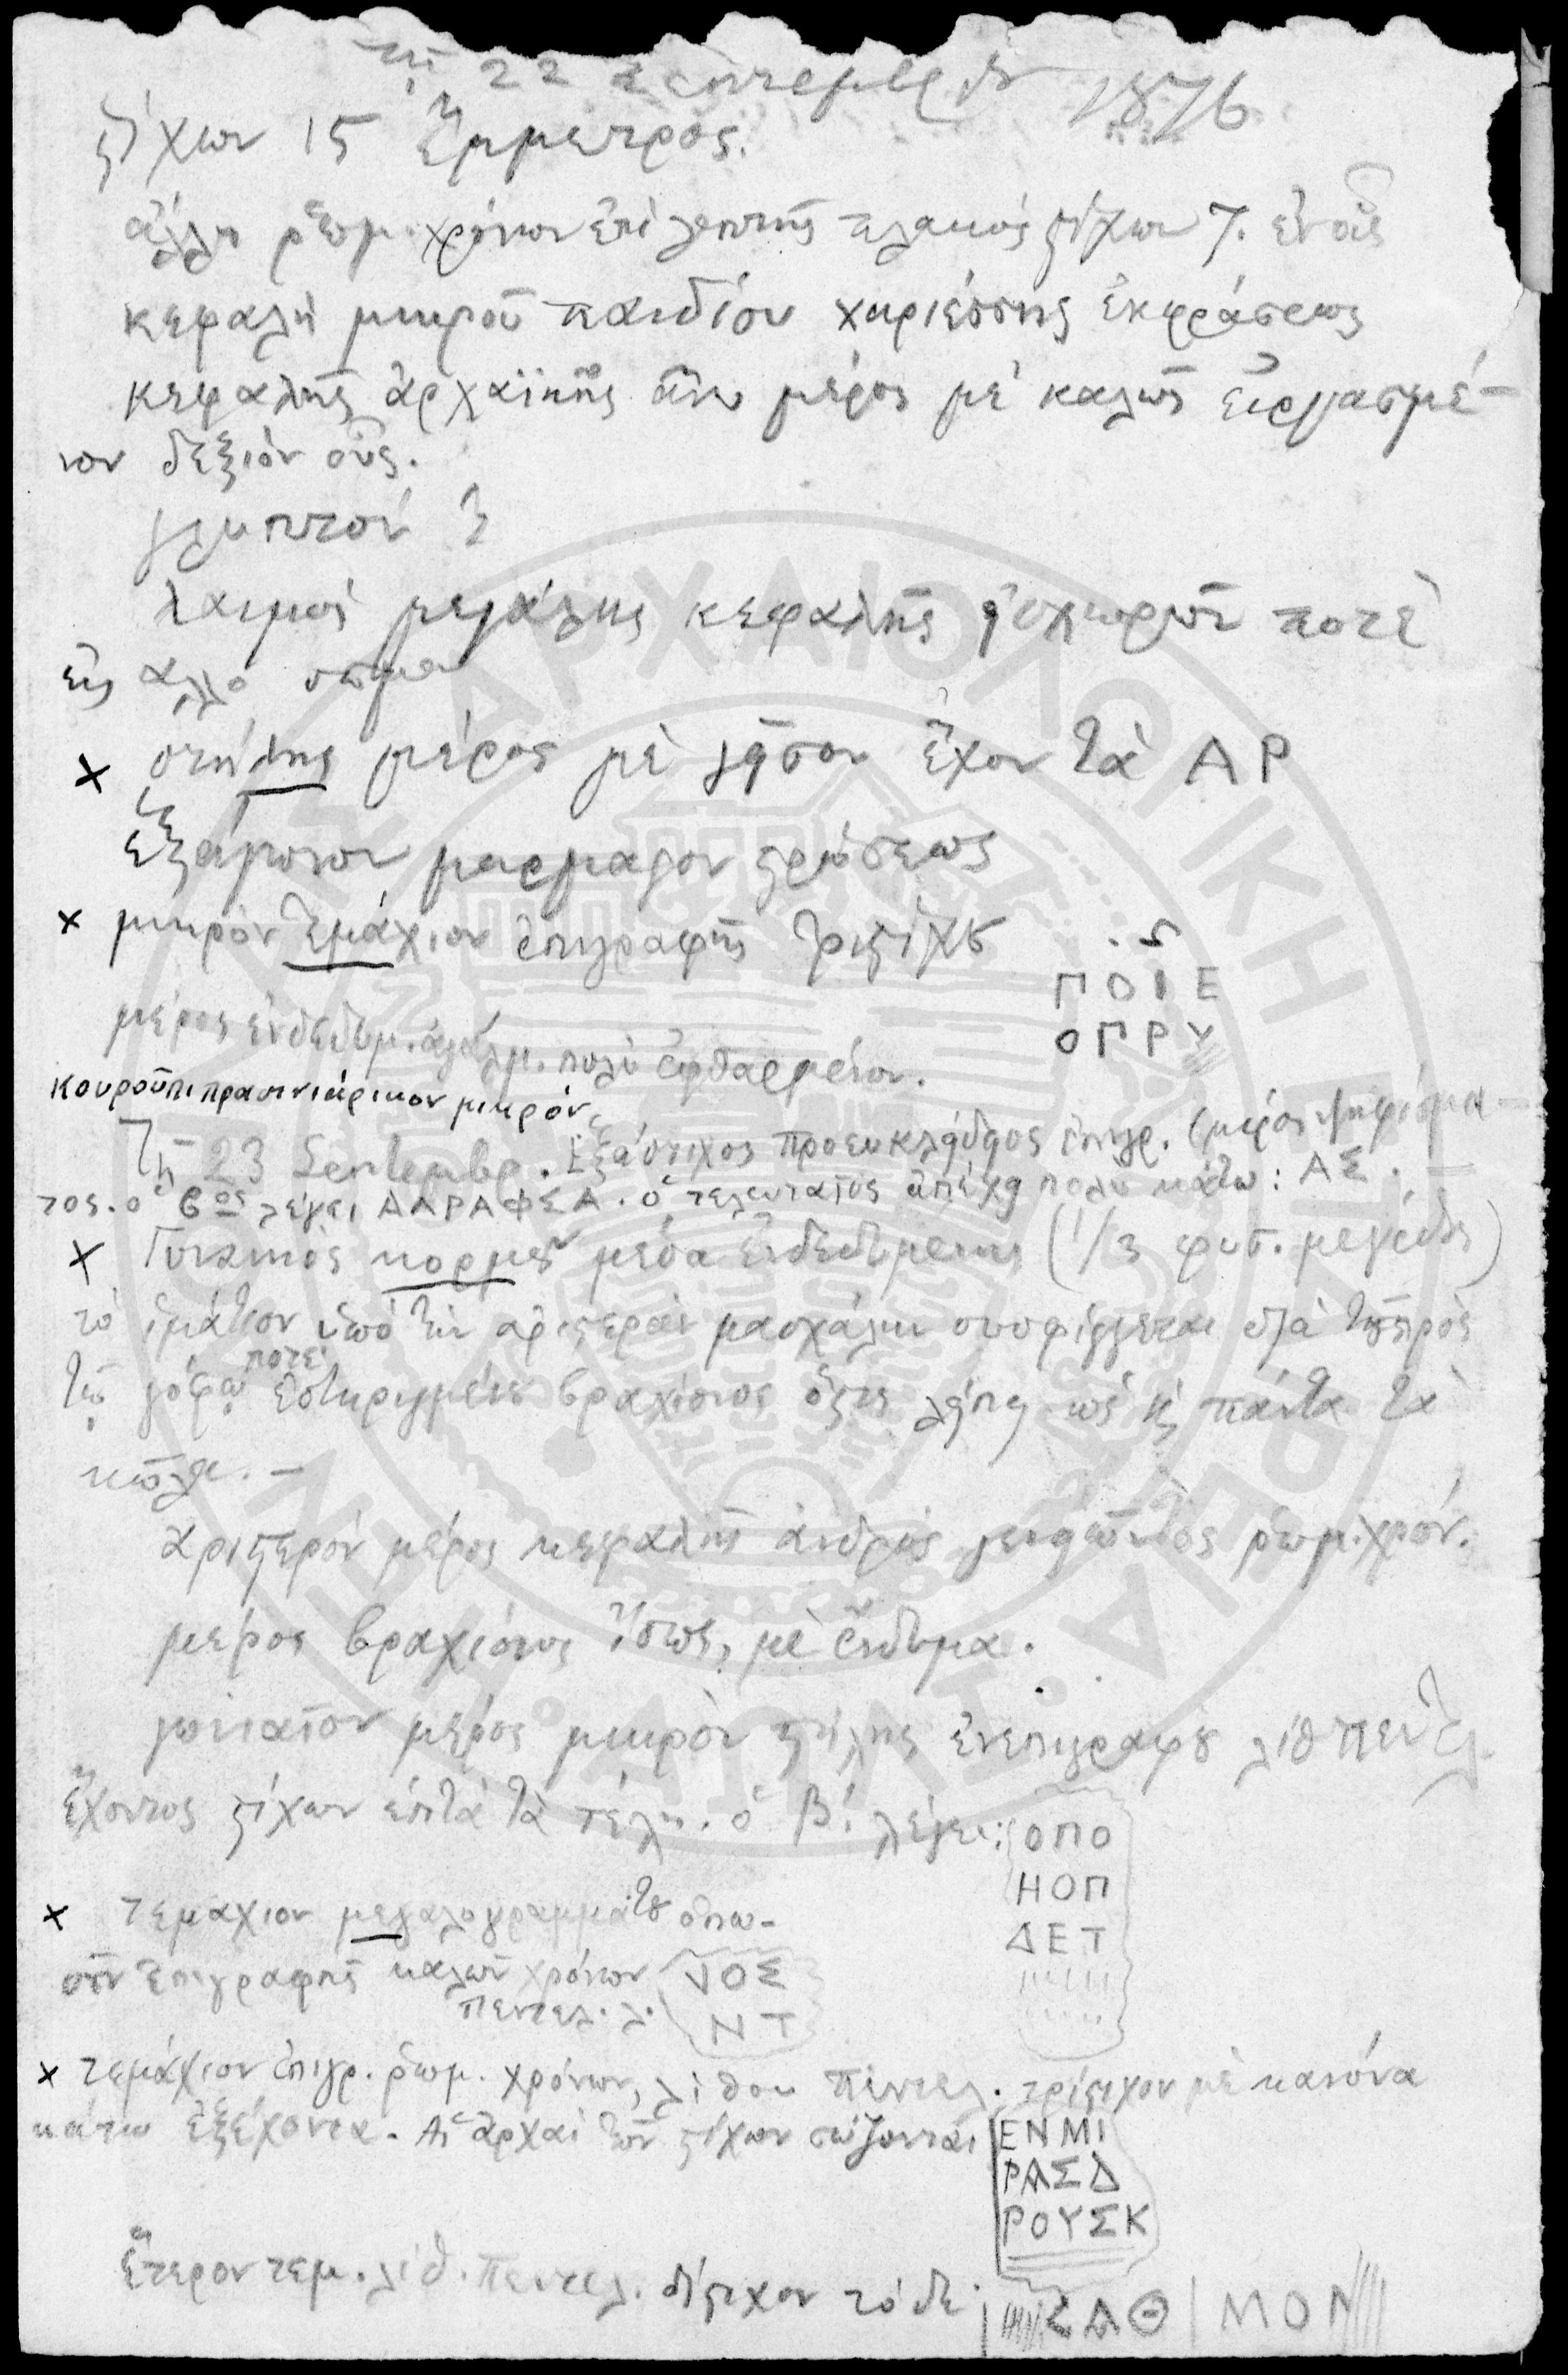 τῇ 22 Σεπτεμβρίου 1876
στίχων 15 ἔμμετρος.
ἄλλη ῥωμ. χρόνων ἐπὶ λεπτῆς πλακὸς στίχων 7.
κεφαλὴ μικροῦ παιδίου χαριέσσης ἐκφράσεως
κεφαλῆς ἀρχαϊκῆς ἄνω μέρος μὲ καλῶς εἰργασμέ-
νον δεξιὸν οὖς.
γλυπτόν
λαιμὸς μεγάλης κεφαλῆς ποτὲ
εἰς ἄλλο σῶμα
× στήλης μέρος μὲ γεῖσον ἔχον τὰ ΑΡ
ἑξάγωνον μαρμάρον στρώσεως
× μικρὸν τεμάχιον ἐπιγραφῆς τριστίχου
ΠΟΙΕ
ΟΠΡΥ
μέρος ἐνδεδυμ. ἀγάλμ. πολὺ ἐφθαρμένον.
κουροῦπι πρασινιάρικον μικρόν
Τῇ 23 Σεπτεμβρ. Ἑξάστιχος προευκλείδειος ἐπιγρ. (μέρος ψηφίσμα-
τος. ὁ βος λέγει ΑΛΡΑΦΣΑ. ὁ τελευταῖος ἀπέχει πολὺ κάτω: ΑΣ. —
× Γυναικὸς κορμοῦ μέσα ἐνδεδυμένης (1/3 φυσ. μεγέθους)
τὸ ἱμάτιον ὑπὸ τὴν ἀριστερὰν μασχάλην συσφίγγεται διὰ τοῦ πρὸς
τῷ γόφῳ ποτὲ ἐστηριγμένου βραχίονος ὅστις λείπει ὡς κ πάντα τὰ
κῶλα. —
ἀριστερὸν μέρος κεφαλῆς ἀνδρὸς γενειῶντος ῥωμ. χρόν.
μέρος βραχίονος ἴσως, μὲ ἔνδυμα.
γωνιαῖον μέρος μικρὸν στήλης ἐνεπιγράφου λίθ πεντελ
ἔχοντος στίχων ἑπτὰ τὰ τέλη. ὁ β. λέγει: ΟΠΟ
ΗΟΠ
ΔΕΤ
× τεμάχιον μεγαλογραμμάτου ὁπω-
σοῦν ἐπιγραφῆς καλῶν χρόνων
πεντελ. λ.
ΝΟΣ
ΝΤ
× τεμάχιον ἐπιγρ. ῥωμ. χρόνων, λίθου πεντελ. τρίστιχον μὲ κανόνα
κάτω ἐξέχοντα. Αἱ ἀρχαὶ τῶν στίχων σώζονται
ΕΝΜΙ
ΡΑΣΔ
ΡΟΥΣΚ
ἕτερον τεμ. λίθ. πεντελ. δίστιχον τόδε
ΣΑΘ | ΜΟΝ